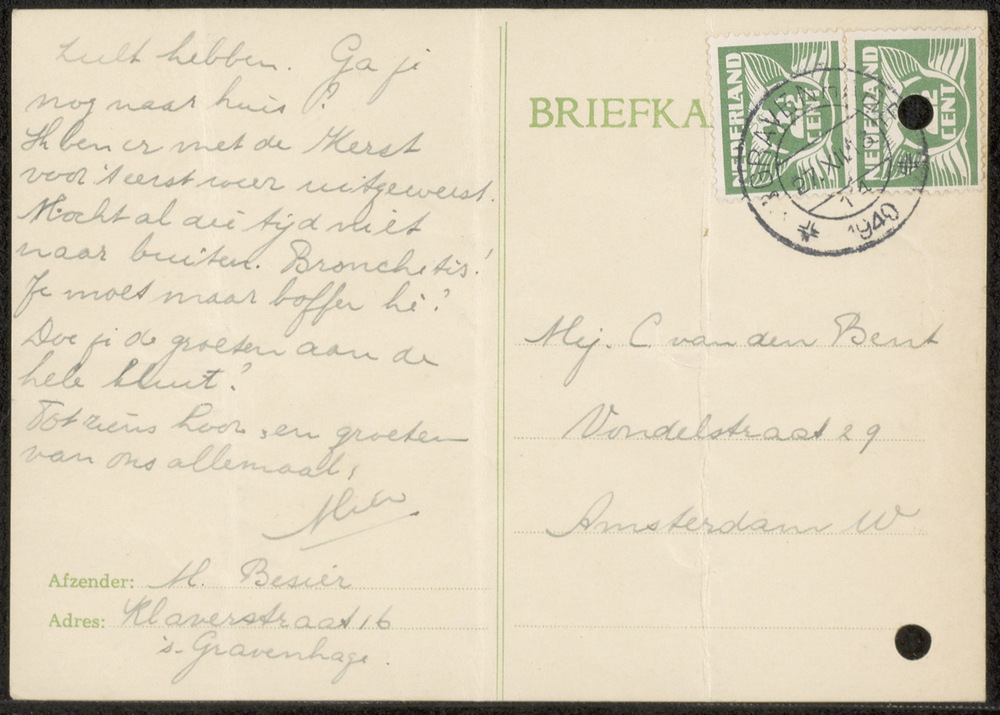 zult hebben. Ga je
nog naar huis?
Ik ben er met de Kerst
voor 't eerst weer uitgeweest.
Mocht al die tijd niet
naar buiten. Bronchetis!
Je moet maar boffen hè?
Doe je de groeten aan de
hele kluit?
Tot ziens hoor, en groeten
van ons allemaal,
Mien
Afzender: M. Besier
Adres: Klaverstraat 16
's-Gravenhage.
BRIEFKA
NEDERLAND
CENT
NEDERLAND
CENT
'S GRAVENHAGE
27.XII.13
1940
Mej. C van den Bent
Vondelstraat 29
Amsterdam W